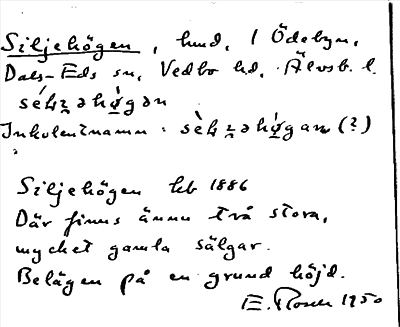 Siljehögen, hmd, 1 Ödebyn,
Dals-Eds sn, Vedbo hd, Älvsb. l.
Inkolentnamn: (?)
Siljehögen hb 1886
Där finns ännu två stora,
mycket gamla sälgar.
Belägen på en grund höjd.
E. Rosen 1950